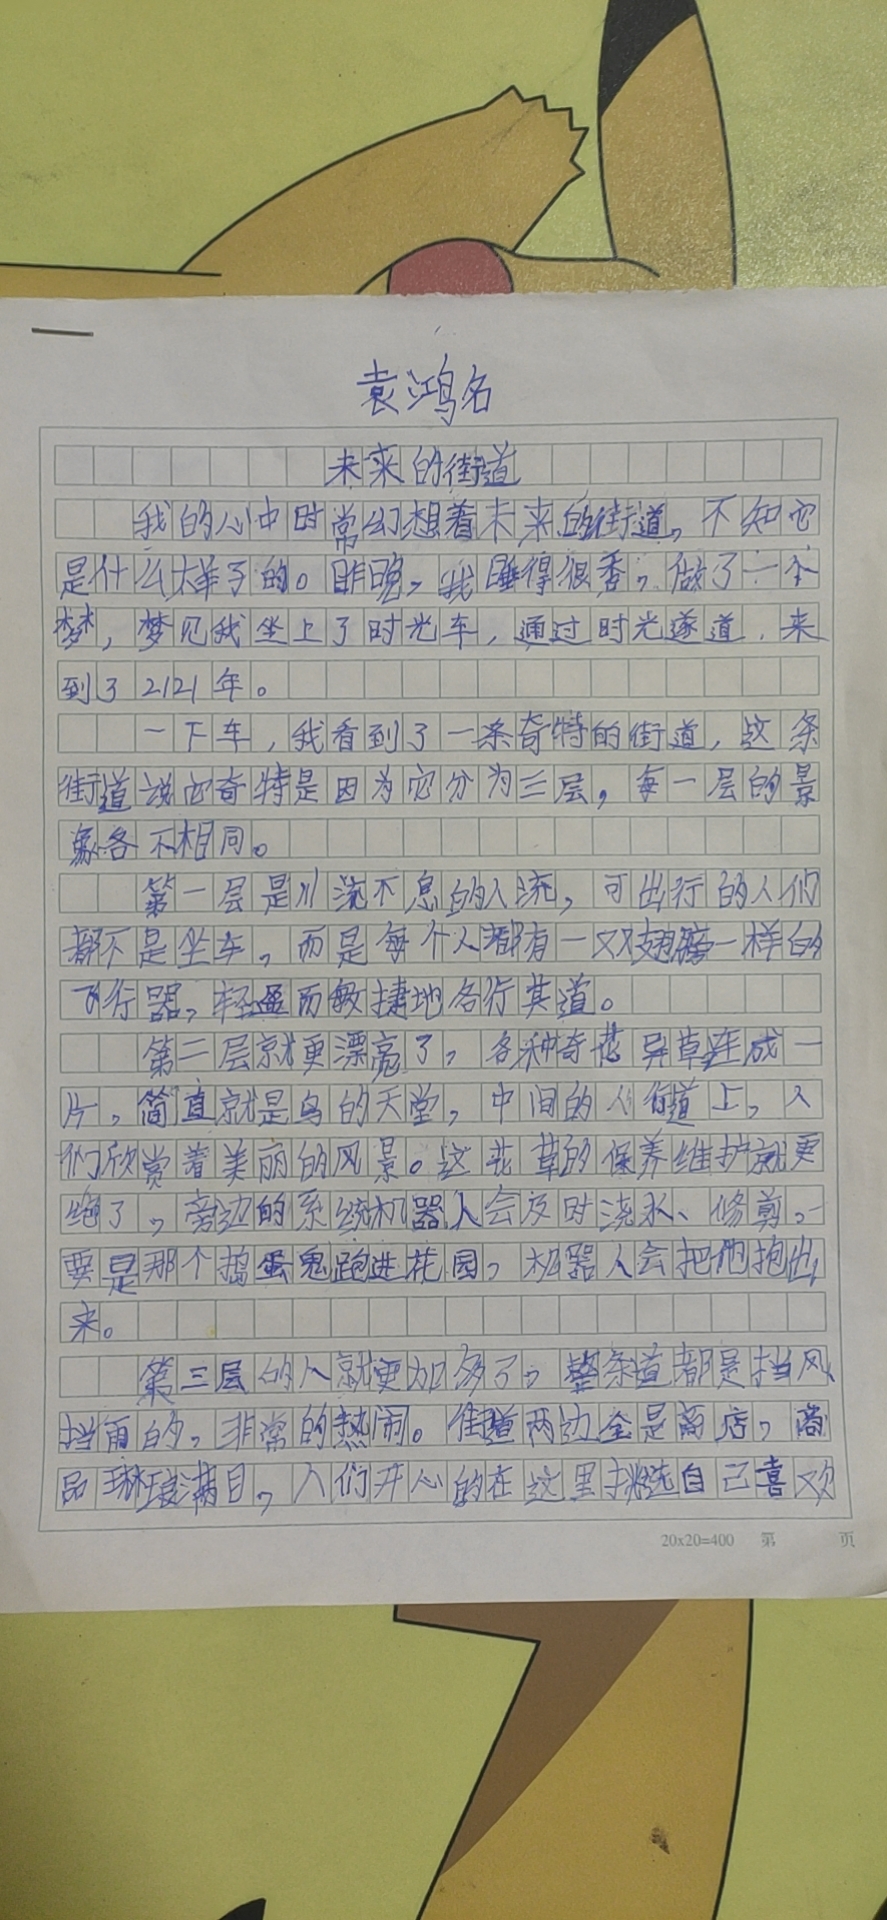 袁鸿名
未来的街道
我的心中时常幻想着未来的街道，不知它
是什么样子的。昨晚，我睡得很香，做了一个
梦，梦见我坐上了时光车，通过时光遂道，来
到了2121年。
一下车，我看到了一条奇特的街道，这条
街道说它奇特是因为它分为三层，每一层的景
象各不相同。
第一层是川流不息的人流，可出行的人们
都不是坐车，而是每个人都有一双翅膀一样的
飞行器，轻盈而敏捷地各行其道。
第二层就更漂亮了，各种奇花异草连成一
片，简直就是鸟的天堂，中间的人行道上，人
们欣赏着美丽的风景。这花草的保养维护就更
绝了，旁边的系统机器人会及时浇水、修剪。一
要是那个捣蛋鬼跑进花园，机器人会把他抱出
来。
第三层的人就更加多了，整条道都是挡风
挡雨的，非常的热闹。街道两边全是商店，商
品琳琅满目，人们开心的在这里挑选自己喜欢
20x20=400 第 页